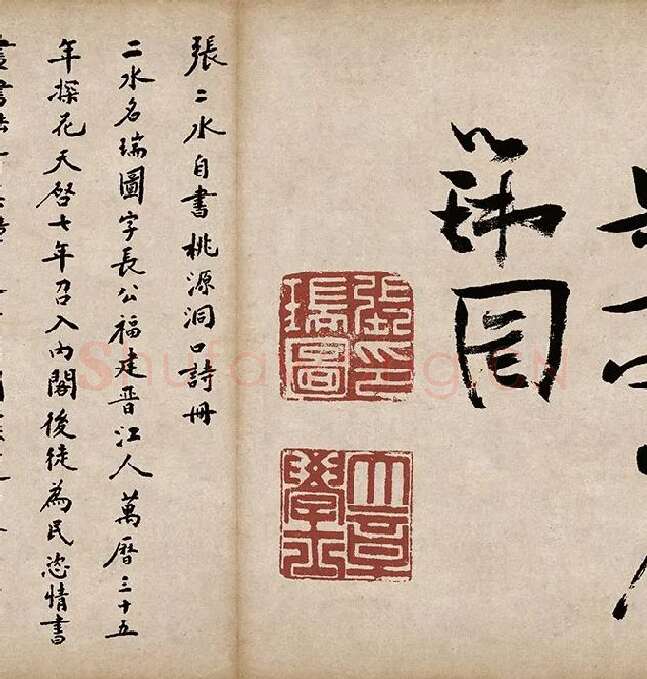 瑞圖
張印
瑞圖
大章
學士
張二水自書桃源洞口詩冊
二水名瑞圖字長公福建晋江人萬曆三十五
年探花天啓七年召入內閣後徒為民恣情書